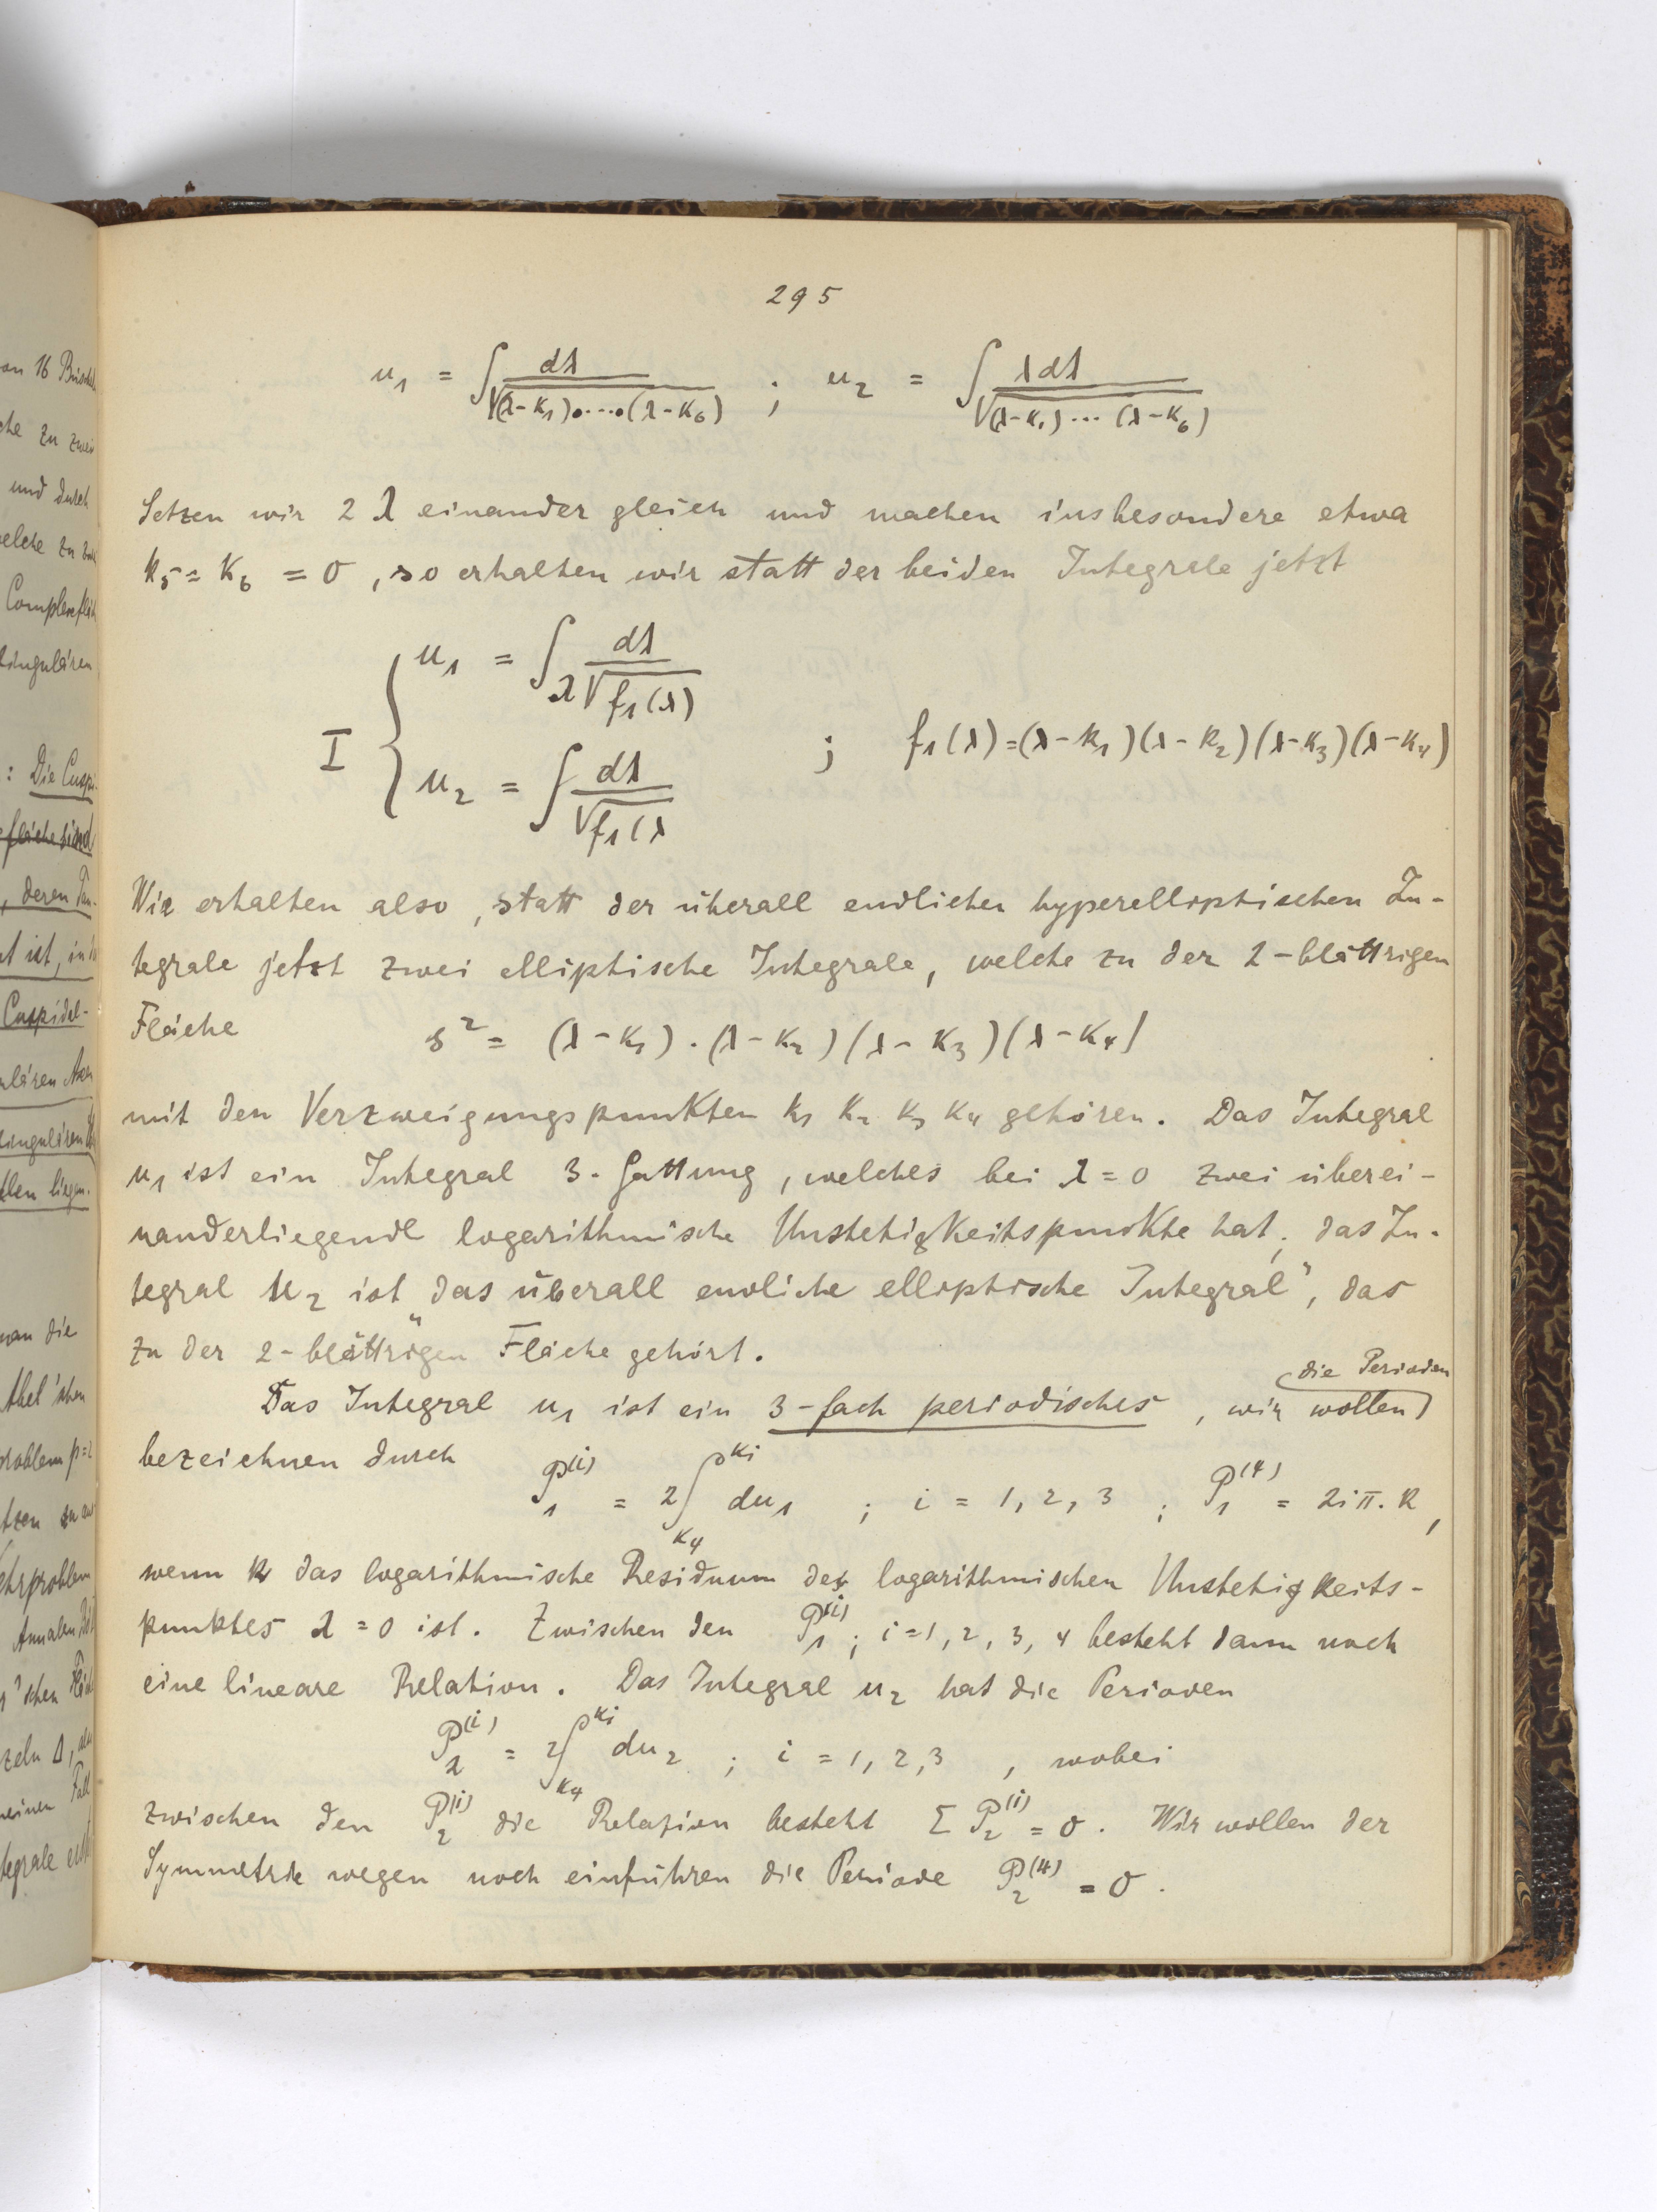 295
u₁ = ∫ dλ / √(λ-k₁)....(λ-k₆) ; u₂ = ∫ λdλ / √(λ-k₁)...(λ-k₆)
Setzen wir 2 λ einander gleich und machen insbesondere etwa
k₅ = k₆ = 0, so erhalten wir statt der beiden Integrale jetzt
I { u₁ = ∫ dλ / λ√f₁(λ)
u₂ = ∫ dλ / √f₁(λ ; f₁(λ) = (λ-k₁)(λ-k₂)(λ-k₃)(λ-k₄)
Wir erhalten also, statt der überall endlichen hyperelliptischen In-
tegrale jetzt zwei elliptische Integrale, welche zu der 2-blättrigen
Fläche s² = (λ-k₁).(λ-k₂)(λ-k₃)(λ-k₄)
mit den Verzweigungspunkten k₁ k₂ k₃ k₄ gehören. Das Integral
u₁ ist ein Integral 3. Gattung, welches bei λ=0 zwei überei-
nanderliegende logarithmische Unstetigkeitspunkte hat; das In-
tegral u₂ ist „das überall endliche elliptische Integral", das
zu der 2-blättrigen Fläche gehört.
Das Integral u₁ ist ein 3-fach periodisches, wir wollen die Perioden
bezeichnen durch P₁⁽ⁱ⁾ = 2∫_{k₄}^{kᵢ} du₁ ; i = 1, 2, 3 ; P₁⁽⁴⁾ = 2iπ.R,
wenn R das logarithmische Residuum des logarithmischen Unstetigkeits-
punktes λ=0 ist. Zwischen den P₁⁽ⁱ⁾; i=1, 2, 3, 4 besteht dann noch
eine lineare Relation. Das Integral u₂ hat die Perioden
P₂⁽ⁱ⁾ = 2∫_{k₄}^{kᵢ} du₂ ; i = 1, 2, 3 , wobei
zwischen den P₂⁽ⁱ⁾ die Relation besteht Σ P₂⁽ⁱ⁾ = 0. Wir wollen der
Symmetrie wegen noch einführen die Periode P₂⁽⁴⁾ = 0.